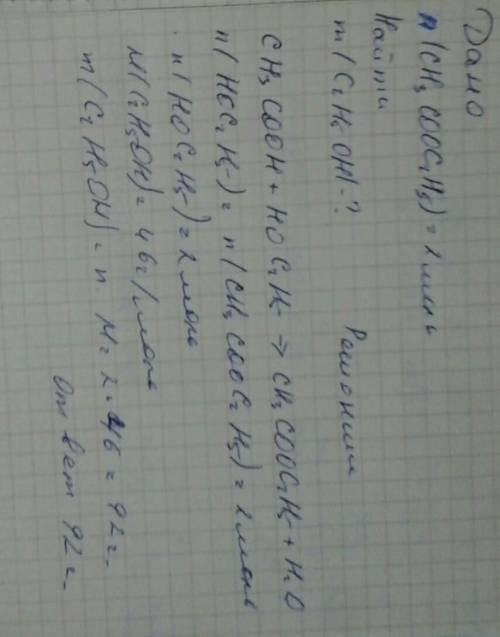 Дано
n(CH3COOC2H5) = 2 моль
Найти
m(C2H5OH) - ?
Решение
CH3COOH + HOC2H5 → CH3COOC2H5 + H2O
n(HOC2H5) = n(CH3COOC2H5) = 2 моль
n(HOC2H5) = 2 моль
M(C2H5OH) = 46 г/моль
m(C2H5OH) = n · M = 2 · 46 = 92 г.
Ответ 92 г.